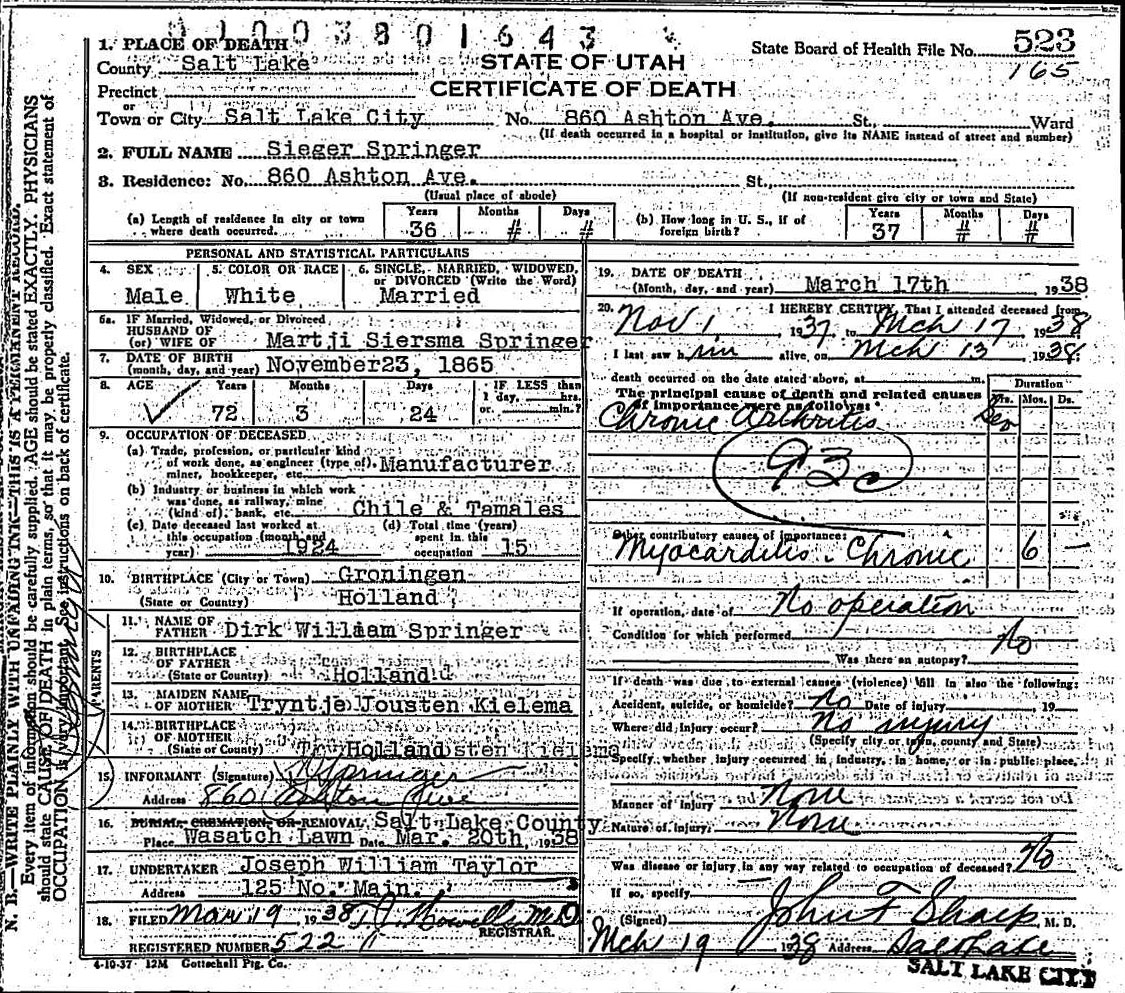 0 1 0 0 3 8 0 1 6 4 3
1. PLACE OF DEATH
County Salt Lake
STATE OF UTAH
CERTIFICATE OF DEATH
State Board of Health File No. 523
165
Precinct
or
Town or City Salt Lake City No. 860 Ashton Ave. St., Ward
(If death occurred in a hospital or institution, give its NAME instead of street and number)
2. FULL NAME Sieger Springer
3. Residence: No. 860 Ashton Ave. St.,
(Usual place of abode) (If non-resident give city or town and State)
(a) Length of residence in city or town where death occurred. Years 36 Months # Days #
(b) How long in U. S., if of foreign birth? Years 37 Months # Days #
PERSONAL AND STATISTICAL PARTICULARS
4. SEX Male
5. COLOR OR RACE White
6. SINGLE, MARRIED, WIDOWED, or DIVORCED (Write the Word) Married
6a. IF Married, Widowed, or Divorced
HUSBAND OF
(or) WIFE OF Martji Siersma Springer
7. DATE OF BIRTH
(month, day, and year) November23, 1865
8. AGE Years 72 Months 3 Days 24 IF LESS than 1 day, hrs. or min.?
9. OCCUPATION OF DECEASED
(a) Trade, profession, or particular kind
of work done, as engineer (type of), Manufacturer
miner, bookkeeper, etc.
(b) Industry or business in which work
was done, as railway, mine
(kind of), bank, etc. Chile & Tamales
(c) Date deceased last worked at this occupation (month and year) 1924
(d) Total time (years) spent in this occupation 15
10. BIRTHPLACE (City or Town) Groningen
(State or Country) Holland
PARENTS
11. NAME OF
FATHER Dirk William Springer
12. BIRTHPLACE
OF FATHER
(State or Country) Holland
13. MAIDEN NAME
OF MOTHER Tryntje Jousten Kielema
14. BIRTHPLACE
OF MOTHER
(State or County) Holland
15. INFORMANT (Signature) Springer
Address 860 Ashton Ave
16. BURIAL, CREMATION, OR REMOVAL Salt Lake County
Place Wasatch Lawn Date Mar. 20th, 1938
17. UNDERTAKER Joseph William Taylor
Address 125 No. Main.
18. FILED Mar 19 1938 M.D.
REGISTRAR.
REGISTERED NUMBER 522
4-10-37 12M Gottschall Ptg. Co.
19. DATE OF DEATH
(Month, day, and year) March 17th 1938
20. I HEREBY CERTIFY, That I attended deceased from
Nov 1 1937 to Mch 17 1938
I last saw him alive on Mch 13 1938;
death occurred on the date stated above, at m.
The principal cause of death and related causes
of importance were as follows:
Duration
Yrs. Mos. Ds.
Chronic Arthritis
93c
Other contributory causes of importance:
Myocarditis. Chronic 6 —
If operation, date of No operation
Condition for which performed
Was there an autopsy? No
If death was due to external causes (violence) fill in also the following:
Accident, suicide, or homicide? No Date of injury 19
Where did injury occur? No injury
(Specify city or town, county and State)
Specify whether injury occurred in industry, in home, or in public place,
Manner of injury None
Nature of injury None
Was disease or injury in any way related to occupation of deceased? No
If so, specify
(Signed) John F Sharp, M. D.
Mch 19 1938 Address Salt Lake
SALT LAKE CITY
N. B.—WRITE PLAINLY WITH UNFADING INK—THIS IS A PERMANENT RECORD.
Every item of information should be carefully supplied. AGE should be stated EXACTLY. PHYSICIANS
should state CAUSE OF DEATH in plain terms, so that it may be properly classified. Exact statement of
OCCUPATION is very important. See instructions on back of certificate.